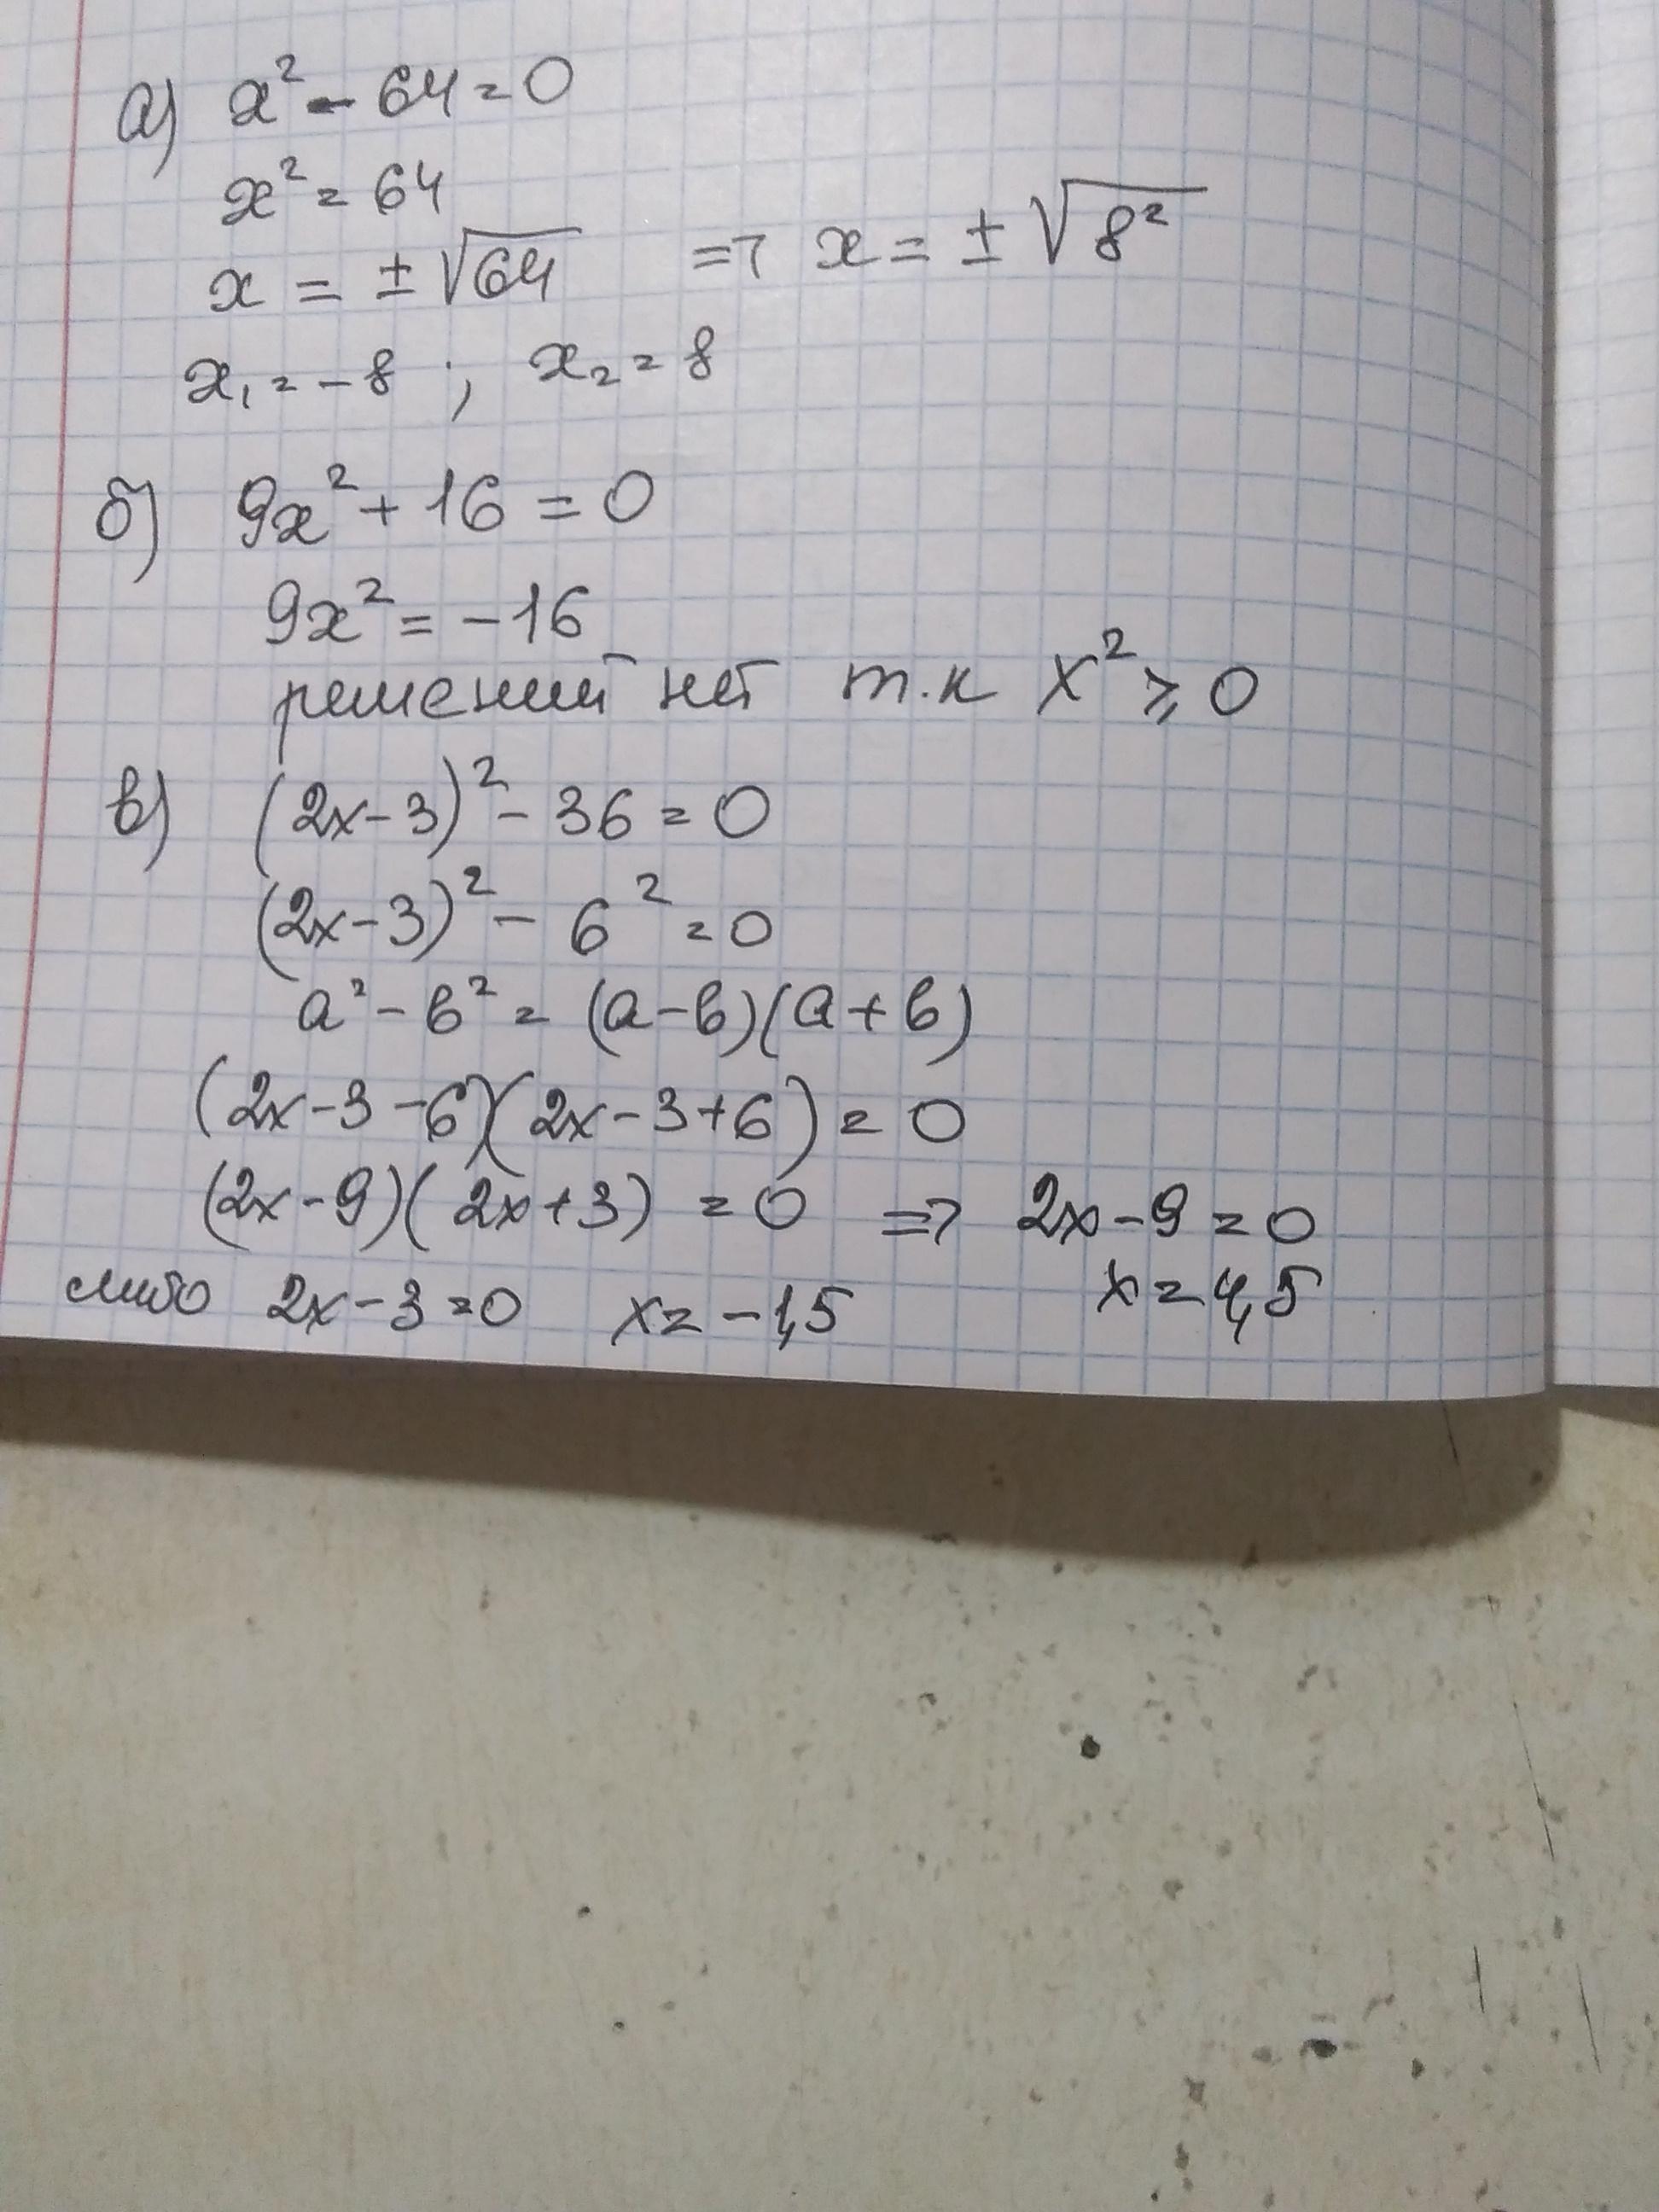 а) x² - 64 = 0
x² = 64
x = ± √64 => x = ± √8²
x₁ = - 8 ; x₂ = 8
б) 9x² + 16 = 0
9x² = - 16
решений нет т.к x² ⩾ 0
в) (2x - 3)² - 36 = 0
(2x - 3)² - 6² = 0
a² - в² = (a - в)(a + в)
(2x - 3 - 6)(2x - 3 + 6) = 0
(2x - 9)(2x + 3) = 0 => 2x - 9 = 0
либо 2x - 3 = 0 x = - 1,5 x = 4,5